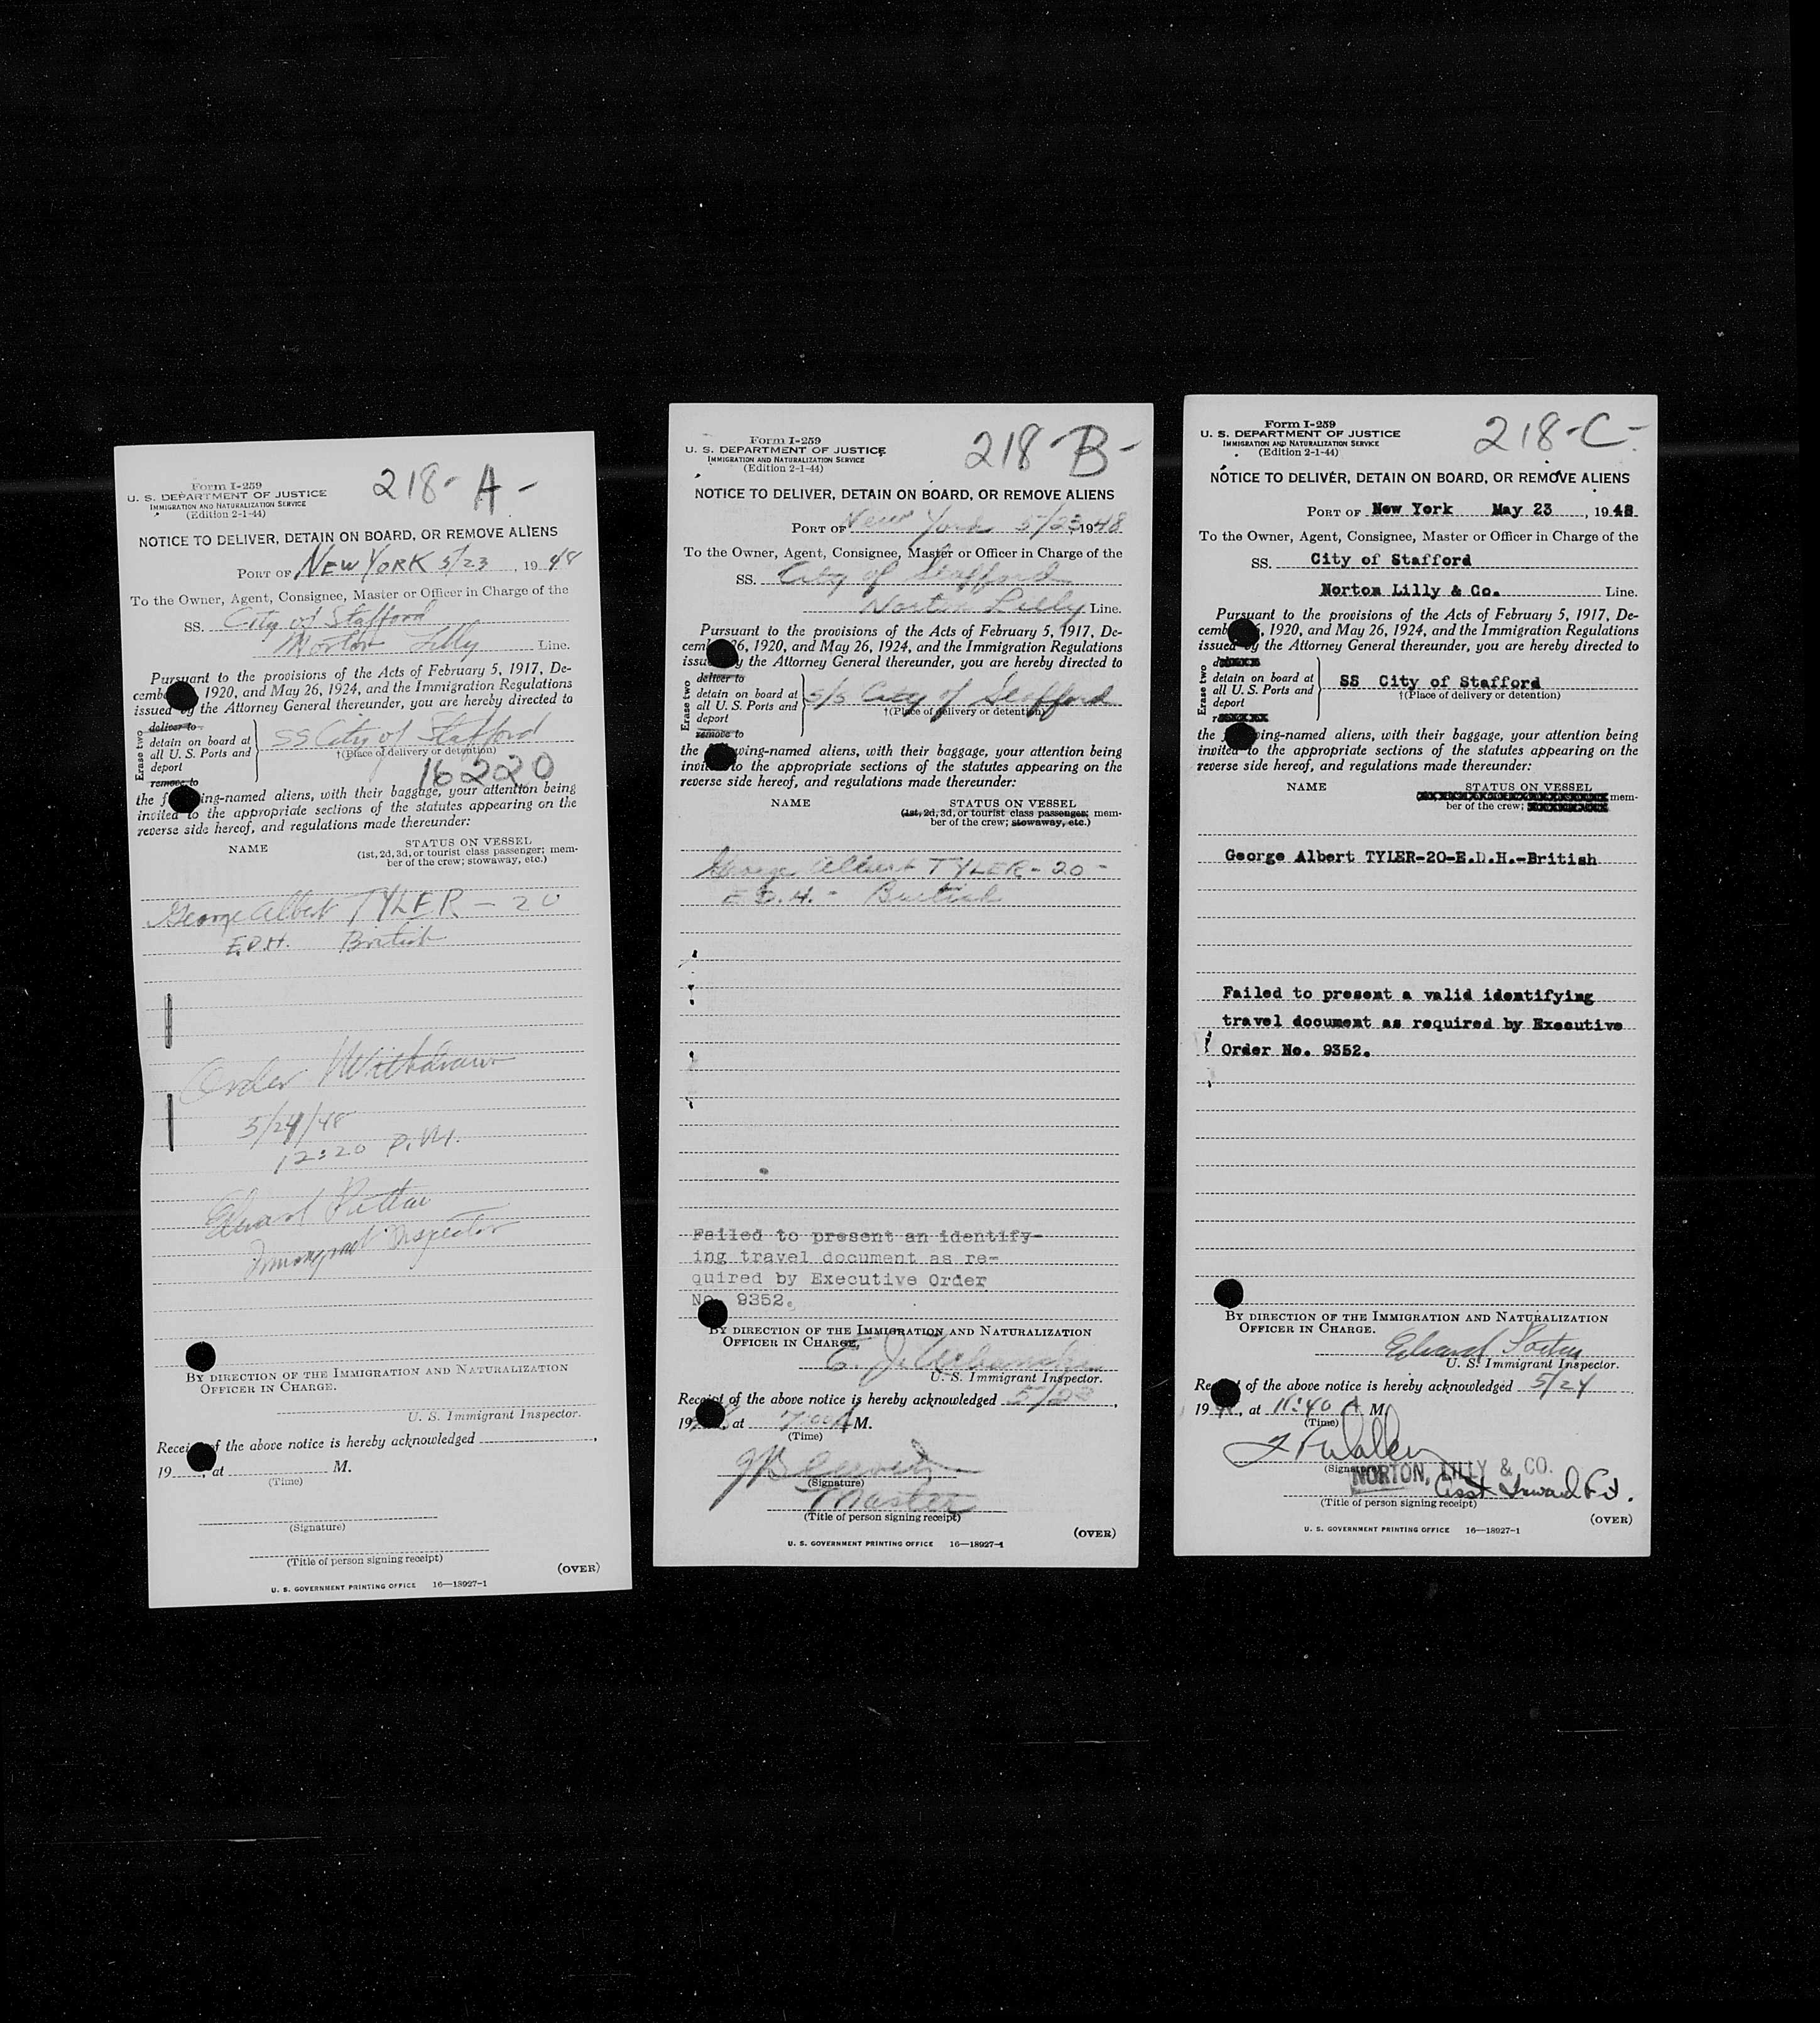 Form I-259
U. S. DEPARTMENT OF JUSTICE
IMMIGRATION AND NATURALIZATION SERVICE
(Edition 2-1-44)
218-A-
NOTICE TO DELIVER, DETAIN ON BOARD, OR REMOVE ALIENS
PORT OF NEW YORK 5/23, 1948
To the Owner, Agent, Consignee, Master or Officer in Charge of the
SS. City of Stafford
Norton Lilly Line.
Pursuant to the provisions of the Acts of February 5, 1917, De-
cemb 1920, and May 26, 1924, and the Immigration Regulations
issued by the Attorney General thereunder, you are hereby directed to
Erase two
deliver to
detain on board at
all U. S. Ports and
deport
remove to
SS City of Stafford
†(Place of delivery or detention)
16220
the f ing-named aliens, with their baggage, your attention being
invited to the appropriate sections of the statutes appearing on the
reverse side hereof, and regulations made thereunder:
NAME
STATUS ON VESSEL
(1st, 2d, 3d, or tourist class passenger; mem-
ber of the crew; stowaway, etc.)
George Albert TYLER - 20
E.D.H. British
Order Withdrawn
5/24/48
12:20 P.M.
Immigrant Inspector
BY DIRECTION OF THE IMMIGRATION AND NATURALIZATION
OFFICER IN CHARGE.
U. S. Immigrant Inspector.
Recei of the above notice is hereby acknowledged
19 , at M.
(Time)
(Signature)
(Title of person signing receipt)
(OVER)
U. S. GOVERNMENT PRINTING OFFICE 16—18927-1
Form I-259
U. S. DEPARTMENT OF JUSTICE
IMMIGRATION AND NATURALIZATION SERVICE
(Edition 2-1-44)
218-B-
NOTICE TO DELIVER, DETAIN ON BOARD, OR REMOVE ALIENS
PORT OF New York 5/23, 1948
To the Owner, Agent, Consignee, Master or Officer in Charge of the
SS. City of Stafford
Norton Lilly Line.
Pursuant to the provisions of the Acts of February 5, 1917, De-
cem 26, 1920, and May 26, 1924, and the Immigration Regulations
issu y the Attorney General thereunder, you are hereby directed to
Erase two
deliver to
detain on board at
all U. S. Ports and
deport
remove to
s/s City of Stafford
†(Place of delivery or detention)
the wing-named aliens, with their baggage, your attention being
invit to the appropriate sections of the statutes appearing on the
reverse side hereof, and regulations made thereunder:
NAME
STATUS ON VESSEL
(1st, 2d, 3d, or tourist class passenger; mem-
ber of the crew; stowaway, etc.)
George Albert TYLER - 20 -
E.D.H. - British
Failed to present an identify-
ing travel document as re-
quired by Executive Order
No. 9352.
BY DIRECTION OF THE IMMIGRATION AND NATURALIZATION
OFFICER IN CHARGE.
U. S. Immigrant Inspector.
Receipt of the above notice is hereby acknowledged 5/23,
19 , at 7:00 A M.
(Time)
(Signature)
Master
(Title of person signing receipt)
(OVER)
U. S. GOVERNMENT PRINTING OFFICE 16—18927-1
Form I-259
U. S. DEPARTMENT OF JUSTICE
IMMIGRATION AND NATURALIZATION SERVICE
(Edition 2-1-44)
218-C-
NOTICE TO DELIVER, DETAIN ON BOARD, OR REMOVE ALIENS
PORT OF New York May 23, 1948
To the Owner, Agent, Consignee, Master or Officer in Charge of the
SS. City of Stafford
Norton Lilly & Co. Line.
Pursuant to the provisions of the Acts of February 5, 1917, De-
cemb , 1920, and May 26, 1924, and the Immigration Regulations
issued by the Attorney General thereunder, you are hereby directed to
Erase two
detain on board at
all U. S. Ports and
deport
SS City of Stafford
†(Place of delivery or detention)
the ing-named aliens, with their baggage, your attention being
invited to the appropriate sections of the statutes appearing on the
reverse side hereof, and regulations made thereunder:
NAME
STATUS ON VESSEL
mem-
ber of the crew;
George Albert TYLER-20-E.D.H.-British
Failed to present a valid identifying
travel document as required by Executive
Order No. 9352.
BY DIRECTION OF THE IMMIGRATION AND NATURALIZATION
OFFICER IN CHARGE.
U. S. Immigrant Inspector.
Re t of the above notice is hereby acknowledged 5/24
19 , at 11:40 A M.
(Time)
(Signature)
NORTON, LILLY & CO.
Asst Inward Frt.
(Title of person signing receipt)
(OVER)
U. S. GOVERNMENT PRINTING OFFICE 16—18927-1